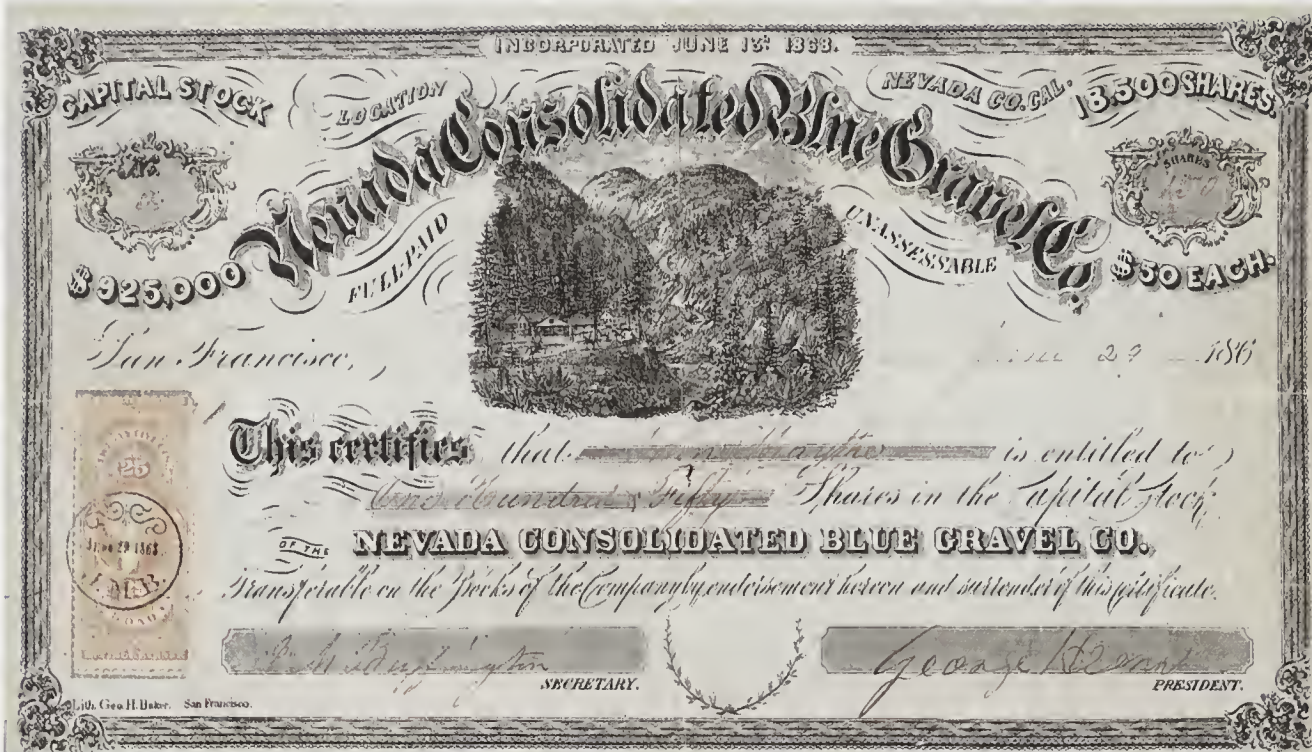 INCORPORATED JUNE 13th 1868.
CAPITAL STOCK
LOCATION
NEVADA CO. CAL.
18,500 SHARES.
Nevada Consolidated Blue Gravel Co.
No.
SHARES
150
$925,000
FULL PAID
UNASSESSABLE
$50 EACH.
San Francisco, 29 186
This certifies that is entitled to
One Hundred & Fifty Shares in the Capital Stock
OF THE NEVADA CONSOLIDATED BLUE GRAVEL CO.
Transferable on the Books of the Company by endorsement hereon and surrender of this certificate.
25
29 1868
George
SECRETARY.
PRESIDENT.
Lith. Geo. H. Baker. San Francisco.